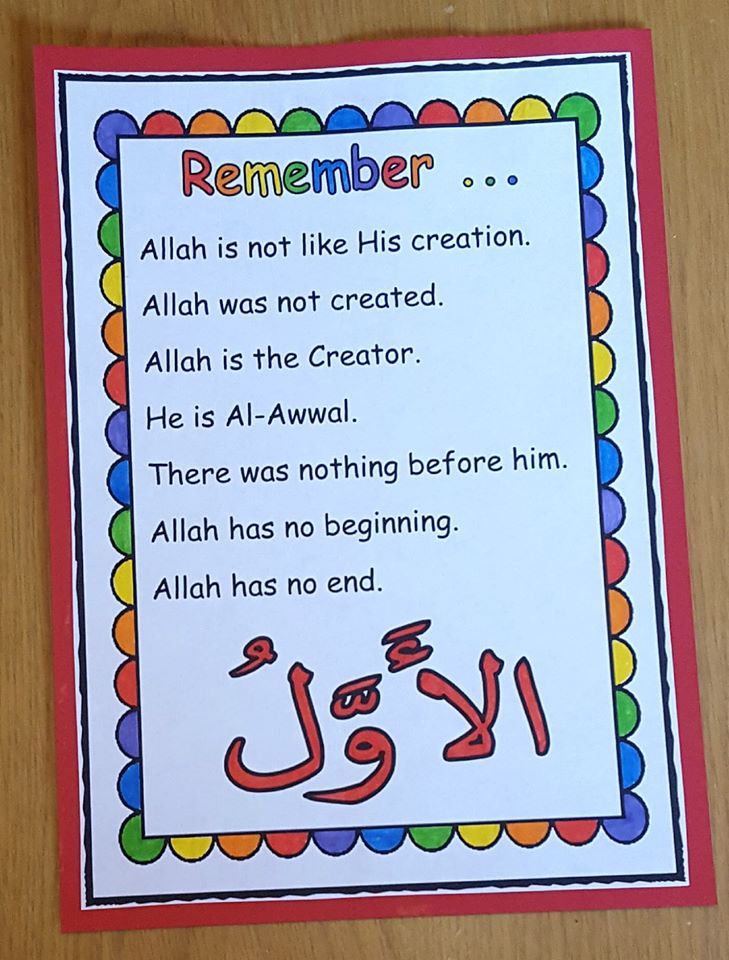 Remember ...
Allah is not like His creation.
Allah was not created.
Allah is the Creator.
He is Al-Awwal.
There was nothing before him.
Allah has no beginning.
Allah has no end.
الأَوَّلُ